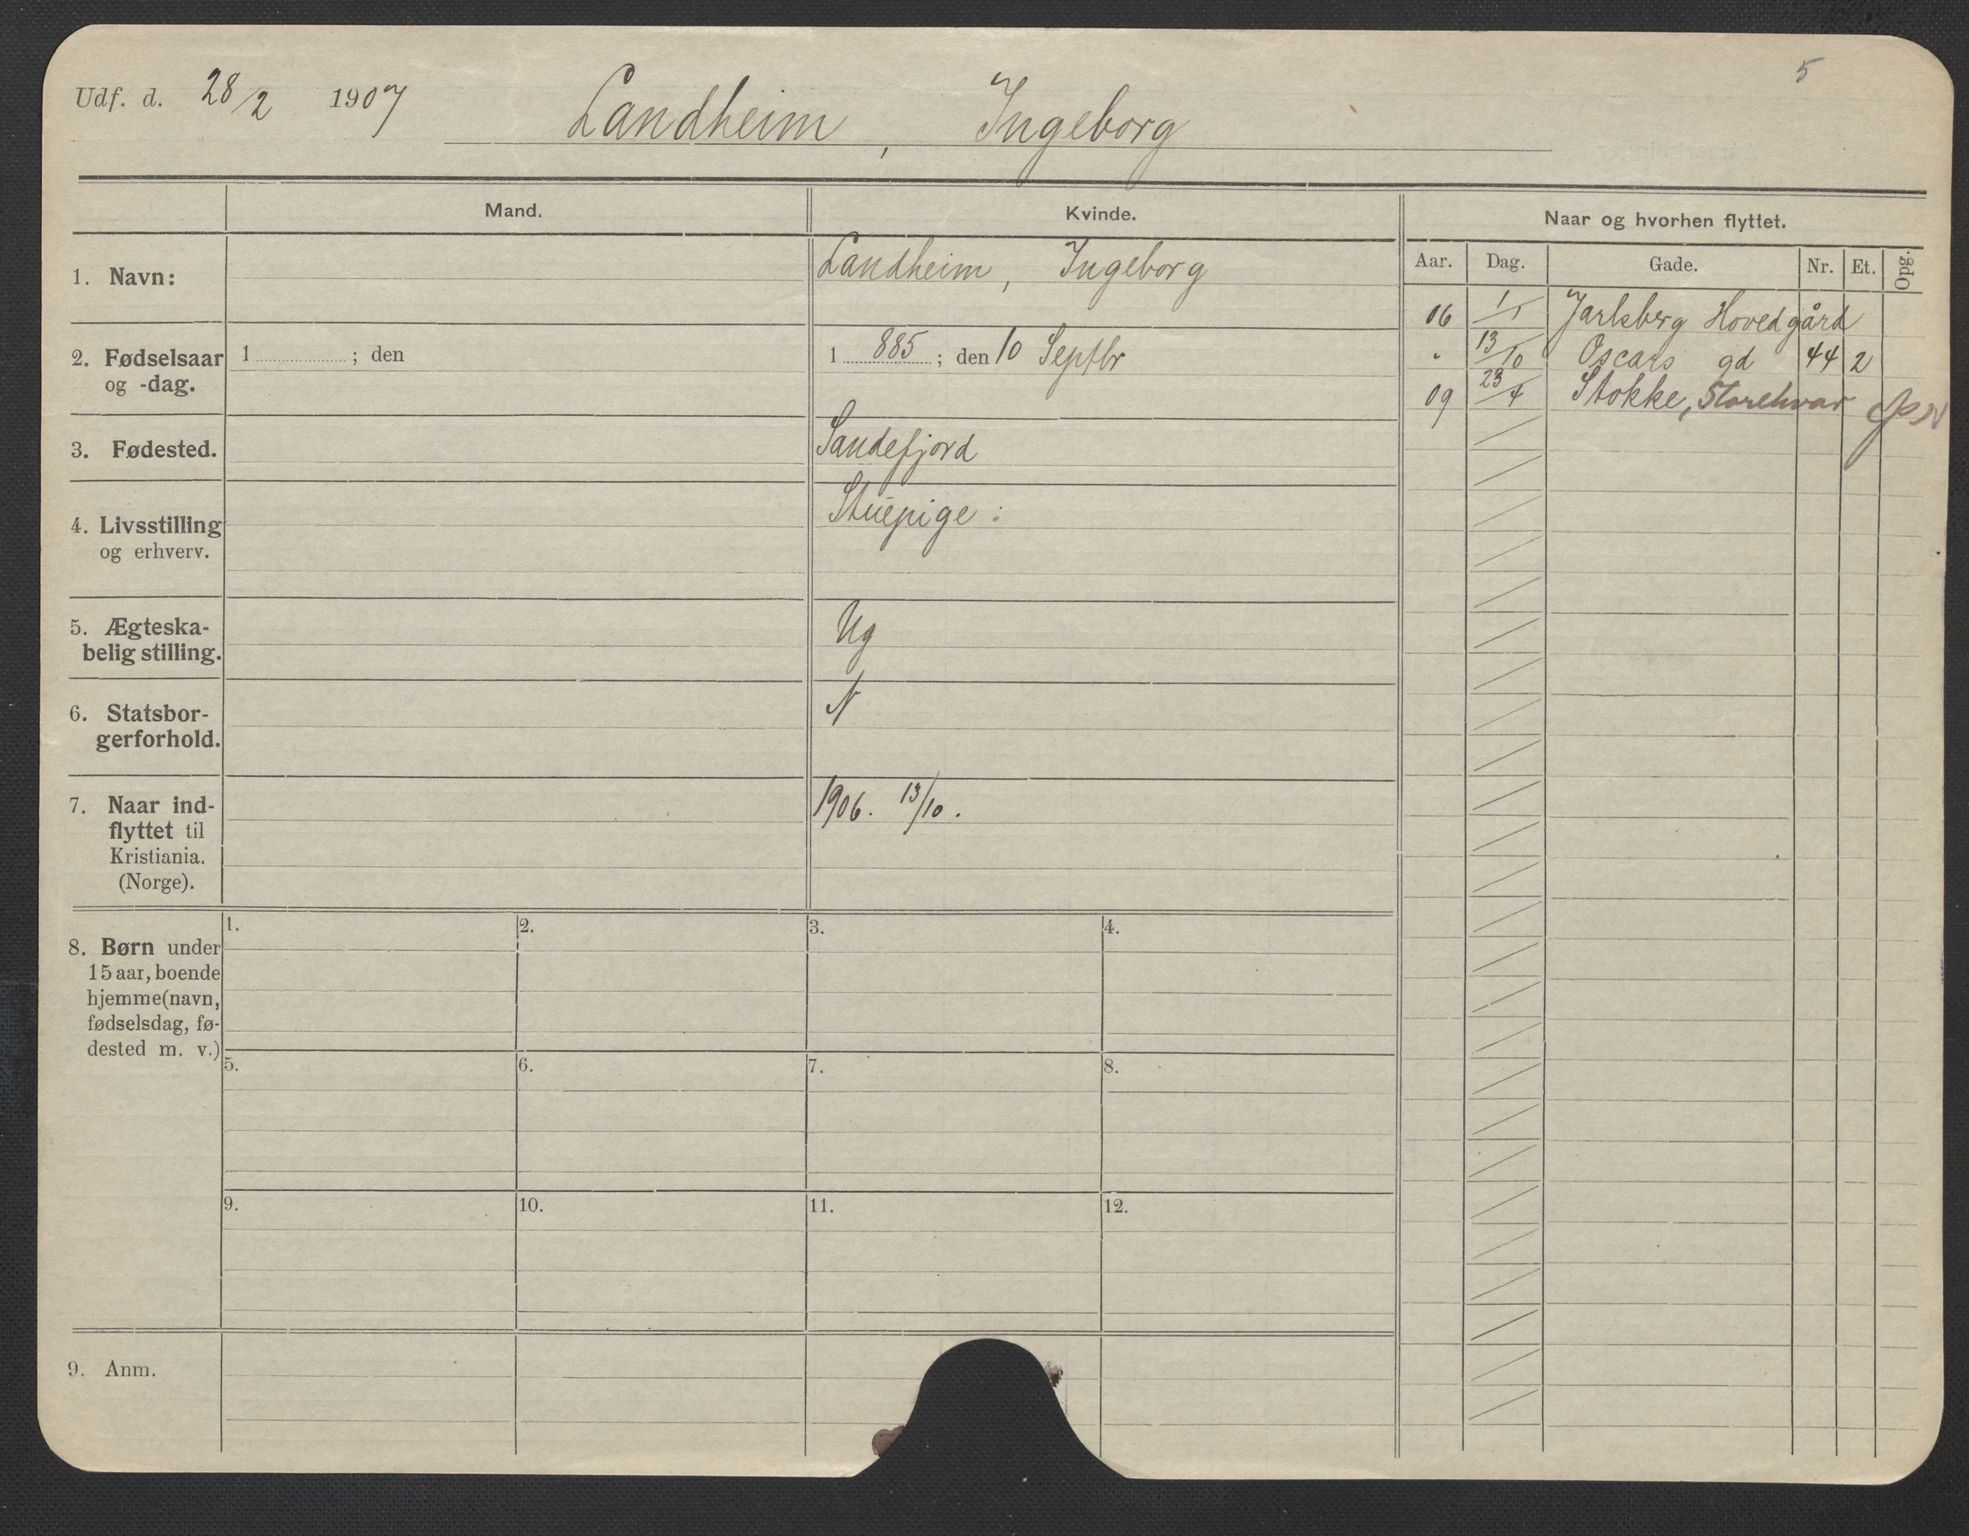 5
Udf. d. 28/2 1907 Landheim, Ingeborg
Mand. Kvinde. Naar og hvorhen flyttet.
Aar. Dag. Gade. Nr. Et. Opg.
1. Navn: Landheim, Ingeborg
06 1/1 Jarlsberg Hovedgård
2. Fødselsaar og -dag. 1 ; den 1 885 ; den 10 Septbr
" 13/10 Oscars gd 44 2
09 23/4 Stokke,
3. Fødested. Sandefjord
4. Livsstilling og erhverv. Stuepige :
5. Ægteska-
belig stilling. Ug
6. Statsbor-
gerforhold. N
7. Naar ind-
flyttet til
Kristiania.
(Norge). 1906. 13/10.
8. Børn under
15 aar, boende
hjemme (navn,
fødselsdag, fø-
dested m. v.)
1. 2. 3. 4.
5. 6. 7. 8.
9. 10. 11. 12.
9. Anm.